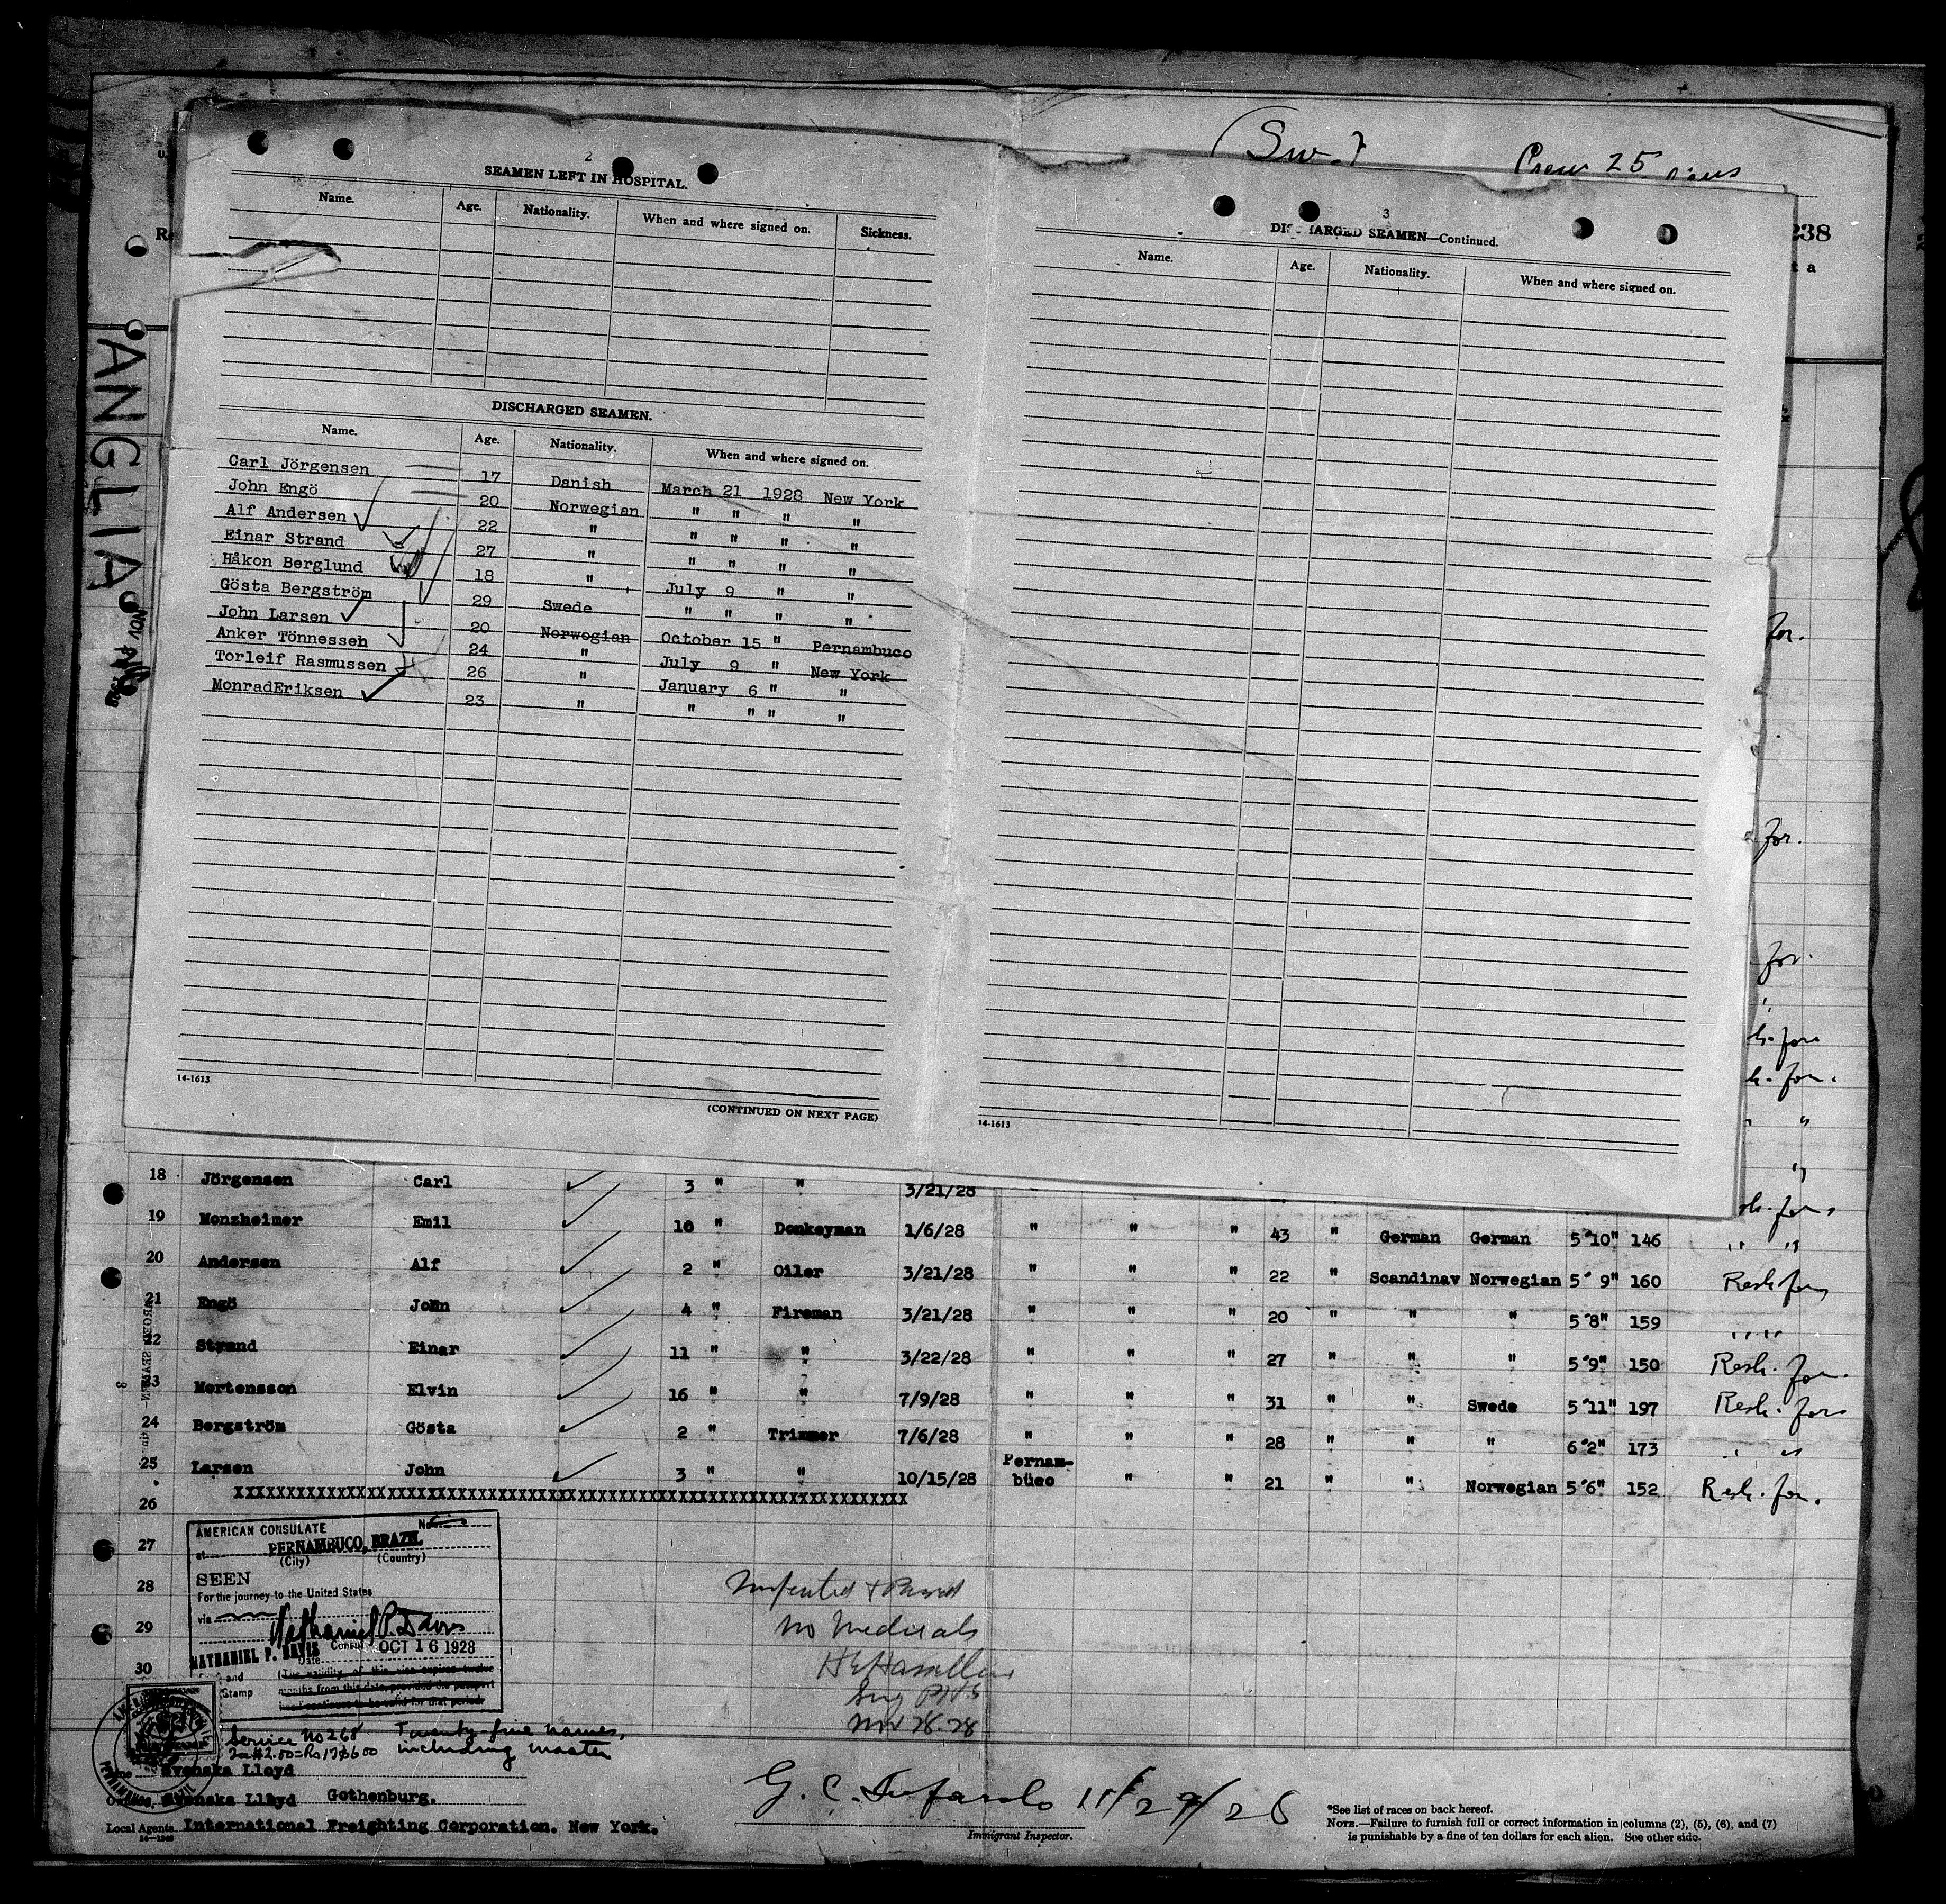 Crew 25
238
ANGLIA
2
SEAMEN LEFT IN HOSPITAL.
Name. Age. Nationality. When and where signed on. Sickness.
DISCHARGED SEAMEN.
Name. Age. Nationality. When and where signed on.
Carl Jörgensen 17 Danish March 21 1928 New York
John Engö 20 Norwegian " " " "
Alf Andersen 22 " " " " "
Einar Strand 27 " " " " "
Håkon Berglund 18 " July 9 " "
Gösta Bergström 29 Swede " " " "
John Larsen 20 Norwegian October 15 " Pernambuco
Anker Tönnessen 24 " July 9 " New York
Torleif Rasmussen 26 " January 6 " "
MonradEriksen 23 " " " " "
14-1613
(CONTINUED ON NEXT PAGE)
3
DISCHARGED SEAMEN—Continued.
Name. Age. Nationality. When and where signed on.
14-1613
for.
for.
for.
18 Jörgensen Carl 3 " " 3/21/28
19 Monzheimer Emil 10 " Donkeyman 1/6/28 " " " 43 " German German 5'10" 146 " "
20 Andersen Alf 2 " Oiler 3/21/28 " " " 22 " Scandinav Norwegian 5' 9" 160 Resh for
21 Engö John 4 " Fireman 3/21/28 " " " 20 " " " 5'8" 159 " "
22 Strand Einar 11 " " 3/22/28 " " " 27 " " " 5'9" 150 Resh. for.
23 Mortensson Elvin 16 " " 7/9/28 " " " 31 " " Swede 5'11" 197 Resh. for
24 Bergström Gösta 2 " Trimmer 7/6/28 " " " 28 " " " 6'2" 173 " "
25 Larsen John 3 " " 10/15/28 Pernam-büco " " 21 " " Norwegian 5'6" 152 Resh. for.
XXXXXXXXXXXXXXXXXXXXXXXXXXXXXXXXXXXXXXXXXXXXXXXXXXXXXXXXXXXXXXXX
26
27
28
29
30
AMERICAN CONSULATE No.
at PERNAMBUCO, BRAZIL
(City) (Country)
SEEN
For the journey to the United States
via
Nathaniel P. Davis
NATHANIEL P. DAVIS Consul
Date OCT 16 1928
and
Stamp
(The validity of this visa expires twelve
months from this date, provided the passport
continues to be valid for that period.
Service No 268 Twenty-five names,
including master
Inspected & Passed
No Medicals
Nov 28.28
Svenska Lloyd
Svenska Lloyd Gothenburg.
Local Agents International Freighting Corporation. New York.
G. C. 11/29/28
Immigrant Inspector.
*See list of races on back hereof.
NOTE.—Failure to furnish full or correct information in columns (2), (5), (6), and (7)
is punishable by a fine of ten dollars for each alien. See other side.